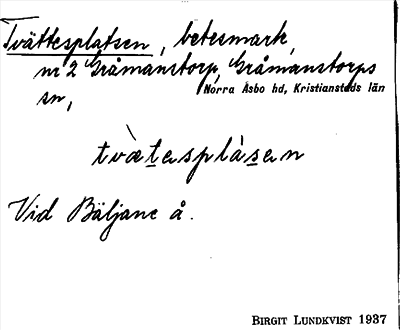 Tvättesplatsen, betesmark,
nr 2 Gråmanstorp, Gråmanstorps
Norra Åsbo hd, Kristianstads län
sn,
tvæ̀tesplàsen
Vid Bäljane å.
BIRGIT LUNDKVIST 1937